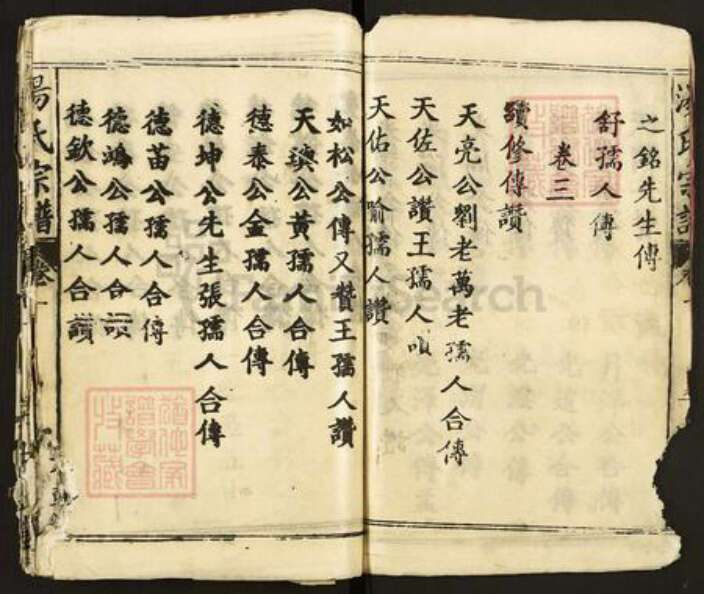 之銘先生傳
舒孺人傳
卷三
續修傳讚
天亮公劉老萬老孺人合傳
天佐公讚王孺人
天佑公喻孺人讚
如松公傳又贊王孺人讚
天璵公黃孺人合傳
德泰公金孺人合傳
德坤公先生張孺人合傳
德苗公孺人合傳
德鴻公孺人合讚
德欽公孺人合讚
湯氏宗譜
卷一
Search